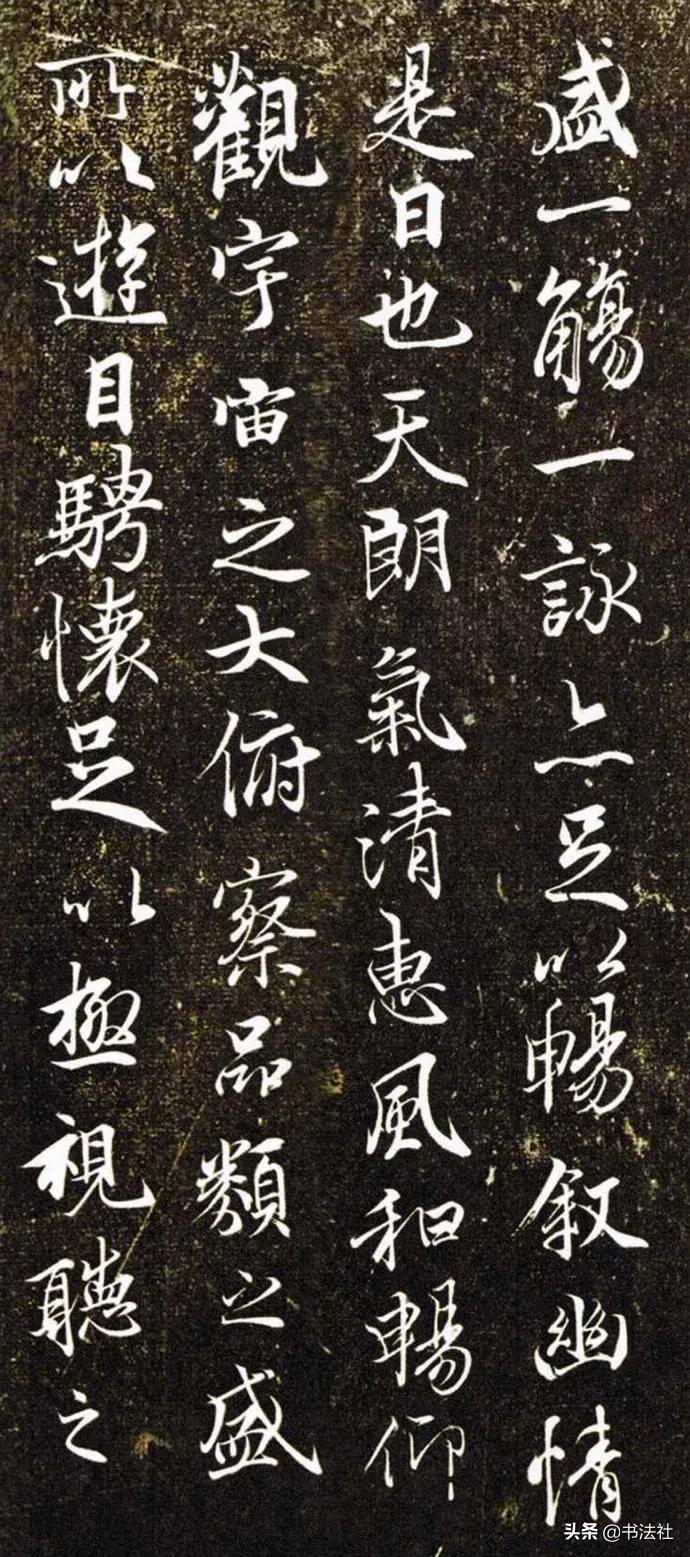 盛一觴一詠亦足以暢敘幽情
是日也天朗氣清惠風和暢仰
觀宇宙之大俯察品類之盛
所以遊目騁懷足以極視聽之
头条 @书法社